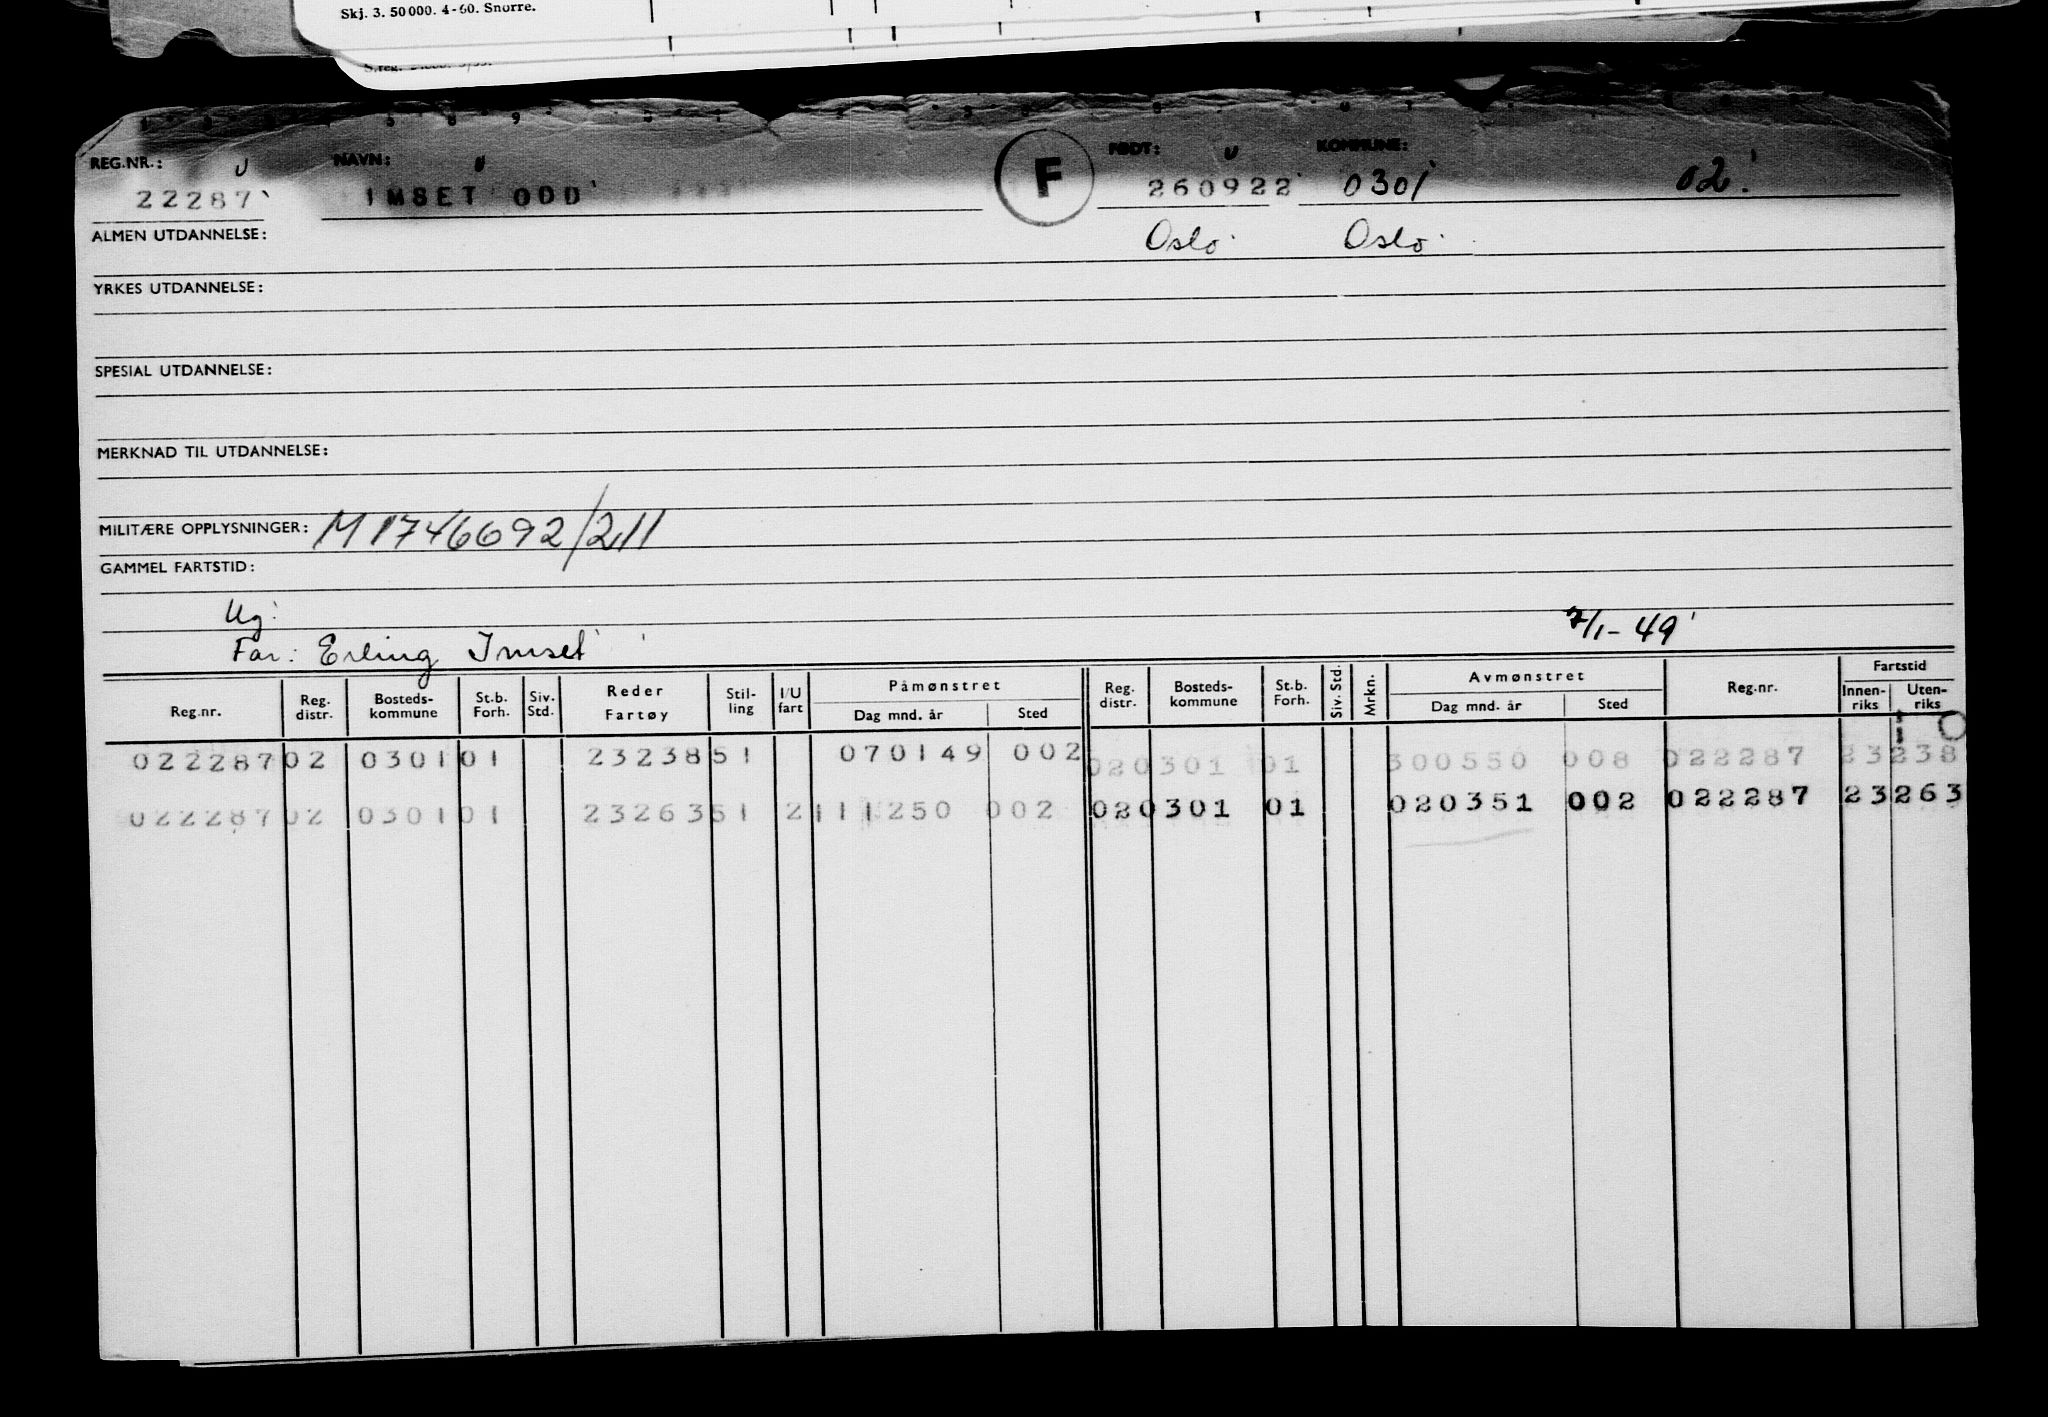 Skj. 3. 50 000. 4-60. Snorre.
REG.NR.: U NAVN: U F FØDT: U KOMMUNE:
22287 IMSET ODD 260922 0301 02.
ALMEN UTDANNELSE: Oslo Oslo
YRKES UTDANNELSE:
SPESIAL UTDANNELSE:
MERKNAD TIL UTDANNELSE:
MILITÆRE OPPLYSNINGER: M1746692/211
GAMMEL FARTSTID:
Ug.
7/1-49
Far: Erling Imset
Reg.nr. Reg. distr. Bosteds-kommune St.b. Forh. Siv. Std. Reder Fartøy Stil-ling I/U fart Påmønstret Dag mnd. år Sted Reg. distr. Bosteds-kommune St.b. Forh. Siv. Std. Mrkn. Avmønstret Dag mnd. år Sted Reg.nr. Fartstid Innen-riks Uten-riks
022287 02 0301 01 23238 51 070149 002 02 0301 01 300550 008 022287 23238
022287 02 0301 01 23263 51 2 111250 002 02 0301 01 020351 002 022287 23263